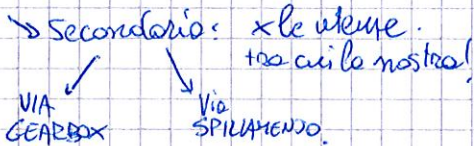 ↘ Secondario: x le utenze.
tra cui la nostra!
VIA GEARBOX
Via SPILLAMENTO.